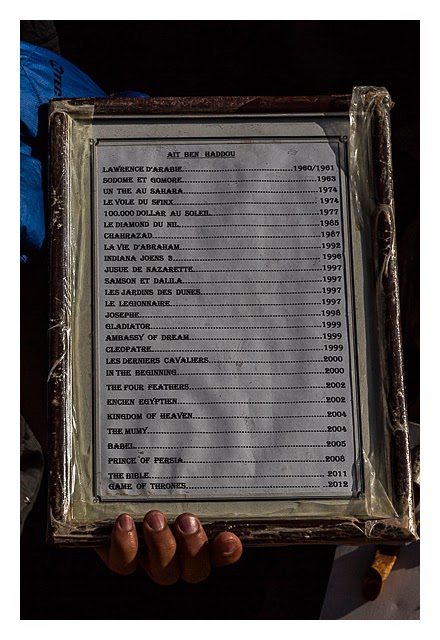 AIT BEN HADDOU
LAWRENCE D'ARABIE............1960/1961
SODOME ET GOMORE............1963
UN THE AU SAHARA............1974
LE VOLE DU SFINX............1974
100.000 DOLLAR AU SOLEIL............1977
LE DIAMOND DU NIL............1985
CHAHRAZAD............1987
LA VIE D'ABRAHAM............1992
INDIANA JOENS 3............1996
JUSUE DE NAZARETTE............1997
SAMSON ET DALILA............1997
LES JARDINS DES DUNES............1997
LE LEGIONNAIRE............1997
JOSEPHE............1998
GLADIATOR............1999
AMBASSY OF DREAM............1999
CLEOPATRE............1999
LES DERNIERS CAVALIERS............2000
IN THE BEGINNING............2000
THE FOUR FEATHERS............2002
ENCIEN EGYPTIEN............2002
KINGDOM OF HEAVEN............2004
THE MUMY............2004
BABEL............2005
PRINCE OF PERSIA............2008
THE BIBLE............2011
GAME OF THRONES............2012